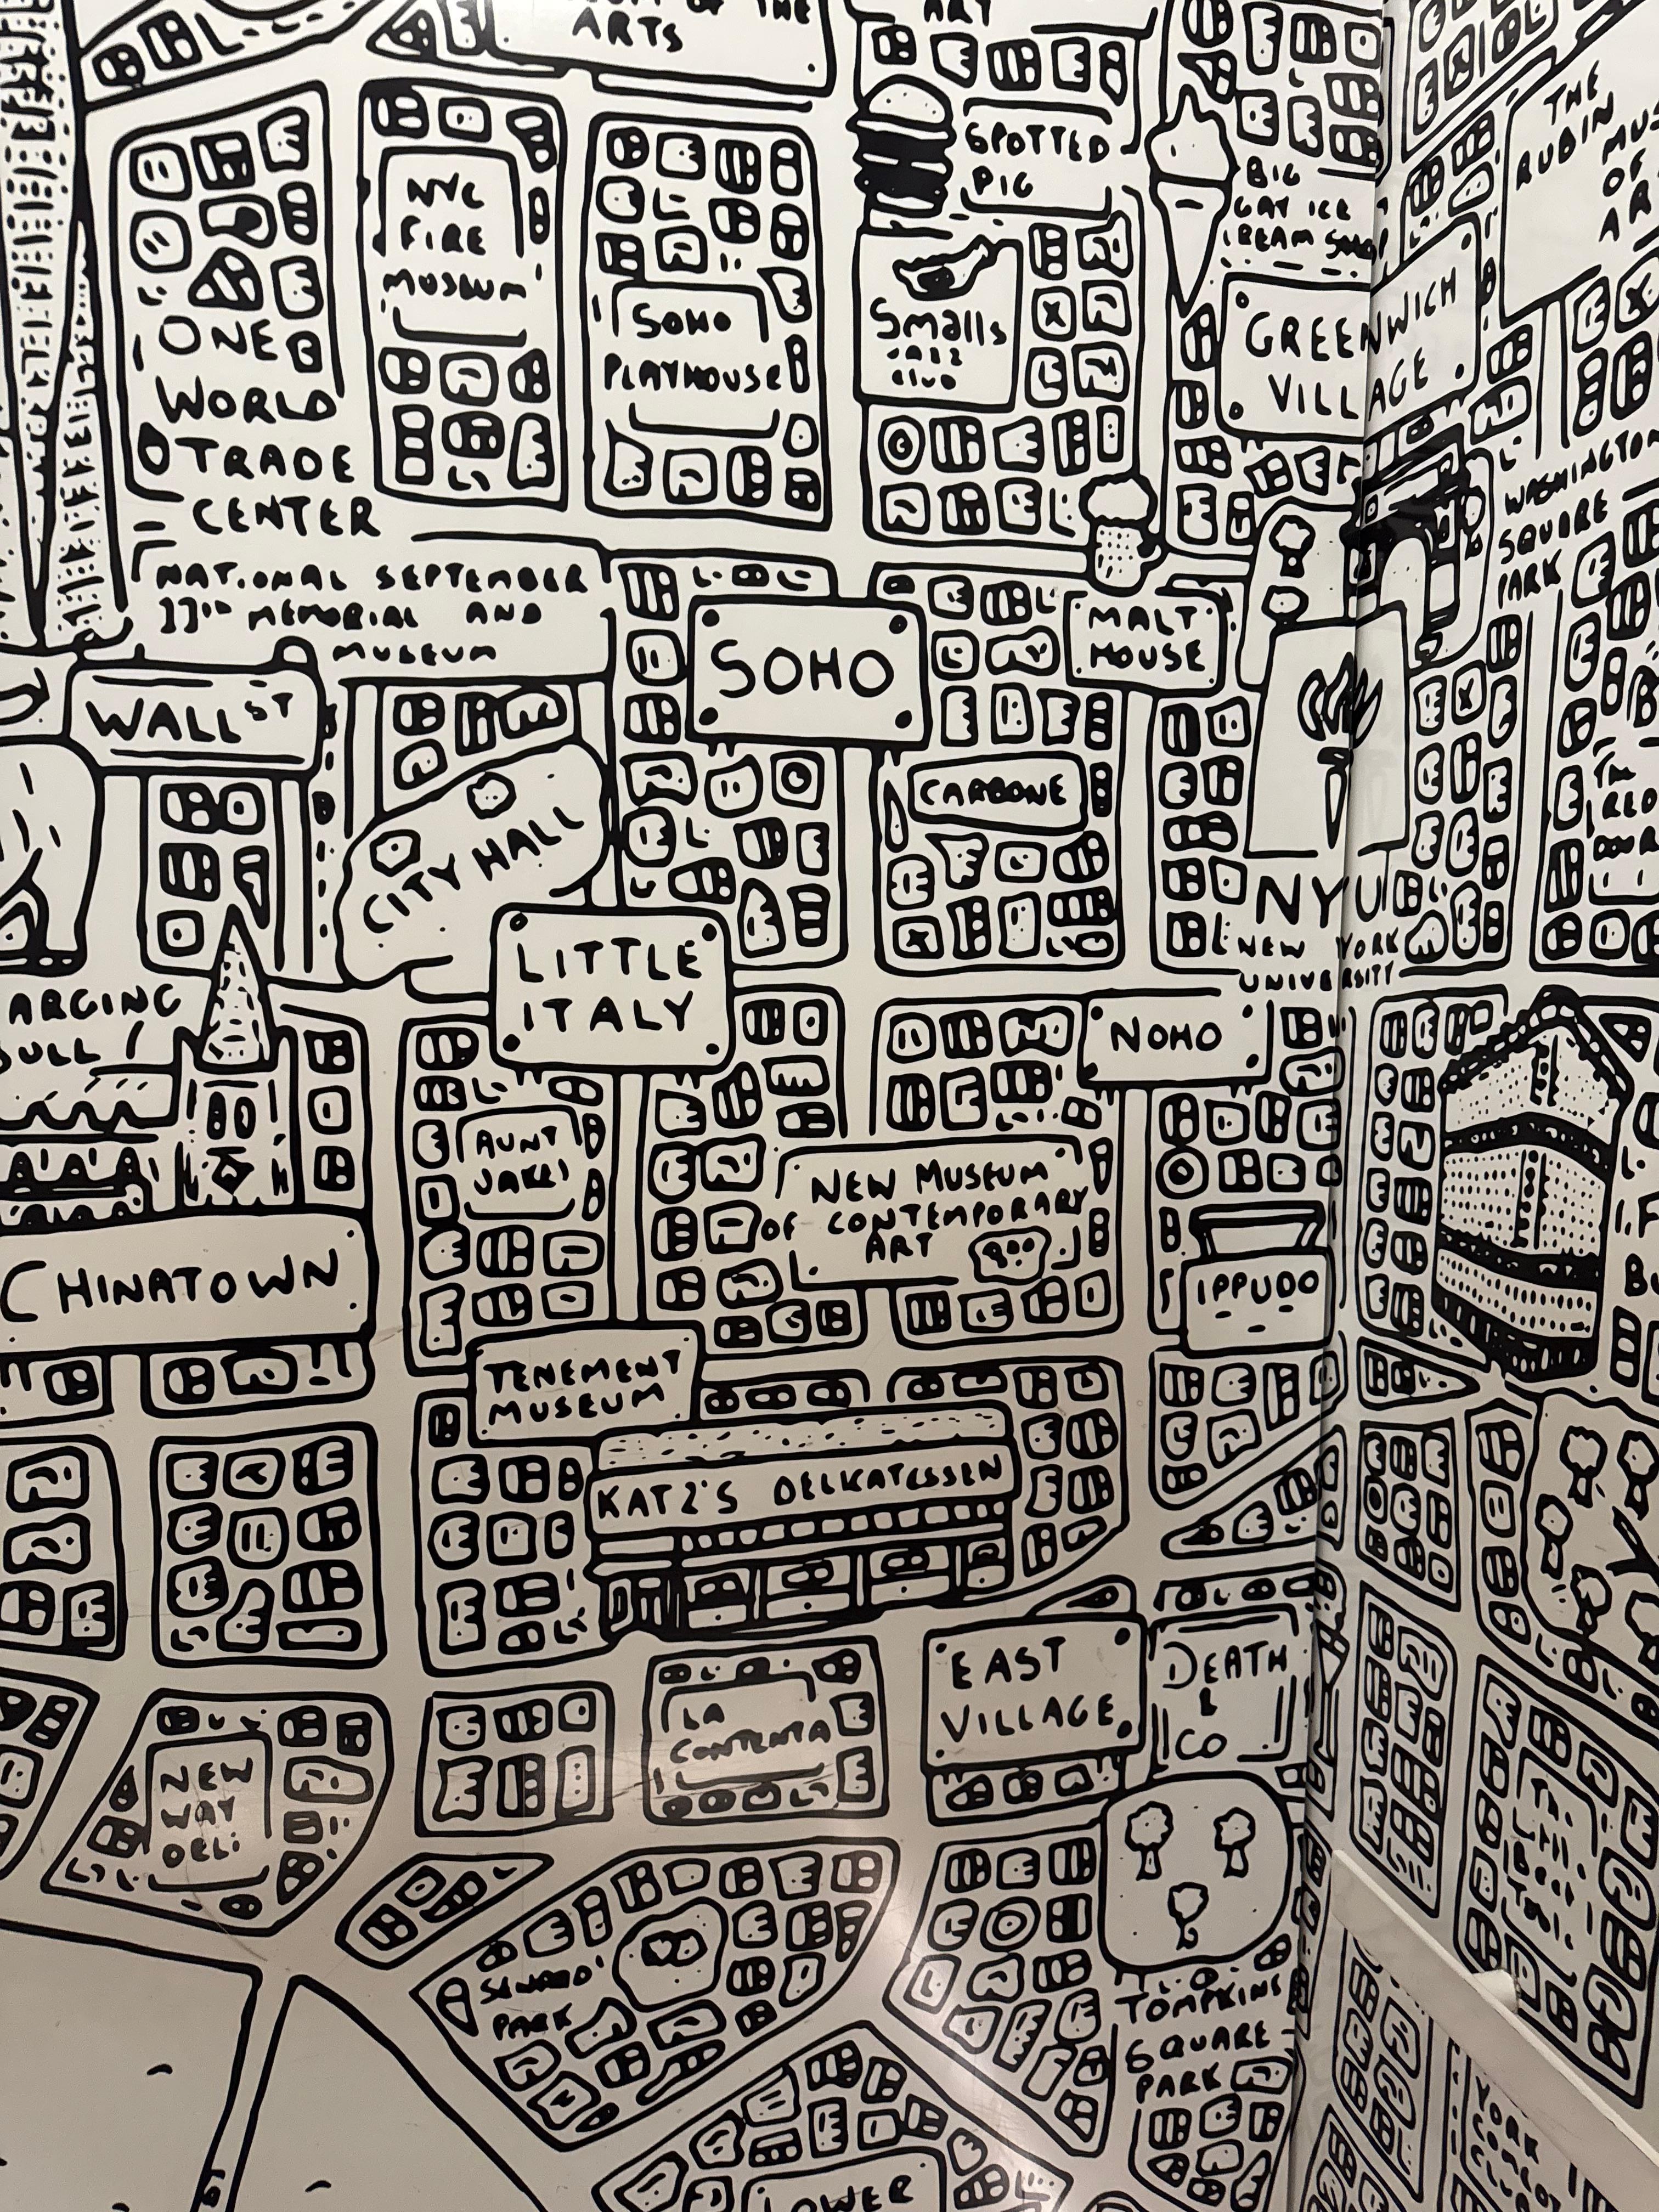 OF THE
ARTS
ART
NYC
FIRE
MUSEUM
SOHO
PLAYHOUSE
SPOTTED
PIG
BIG
GAY ICE
CREAM SHOP
THE
RUBIN
MUS
OF
AR
Smalls
JAZZ
CLUB
GREENWICH
VILLAGE
ONE
WORLD
TRADE
CENTER
WASHINGTON
SQUARE
PARK
NATIONAL SEPTEMBER
11TH MEMORIAL AND
MUSEUM
SOHO
MALT
HOUSE
WALL ST
CARBONE
CITY HALL
NYU
NEW YORK
UNIVERSITY
LITTLE
ITALY
ARGING
BULL
NOHO
AUNT
JAKE'S
NEW MUSEUM
OF CONTEMPORARY
ART
IPPUDO
CHINATOWN
TENEMENT
MUSEUM
KATZ'S DELICATESSEN
EAST
VILLAGE
DEATH
&
CO
LA
CONTENTA
NEW
WAY
DELI
SEWARD
PARK
TOMPKINS
SQUARE
PARK
YORK
COMEDY
CLUB
LOWER